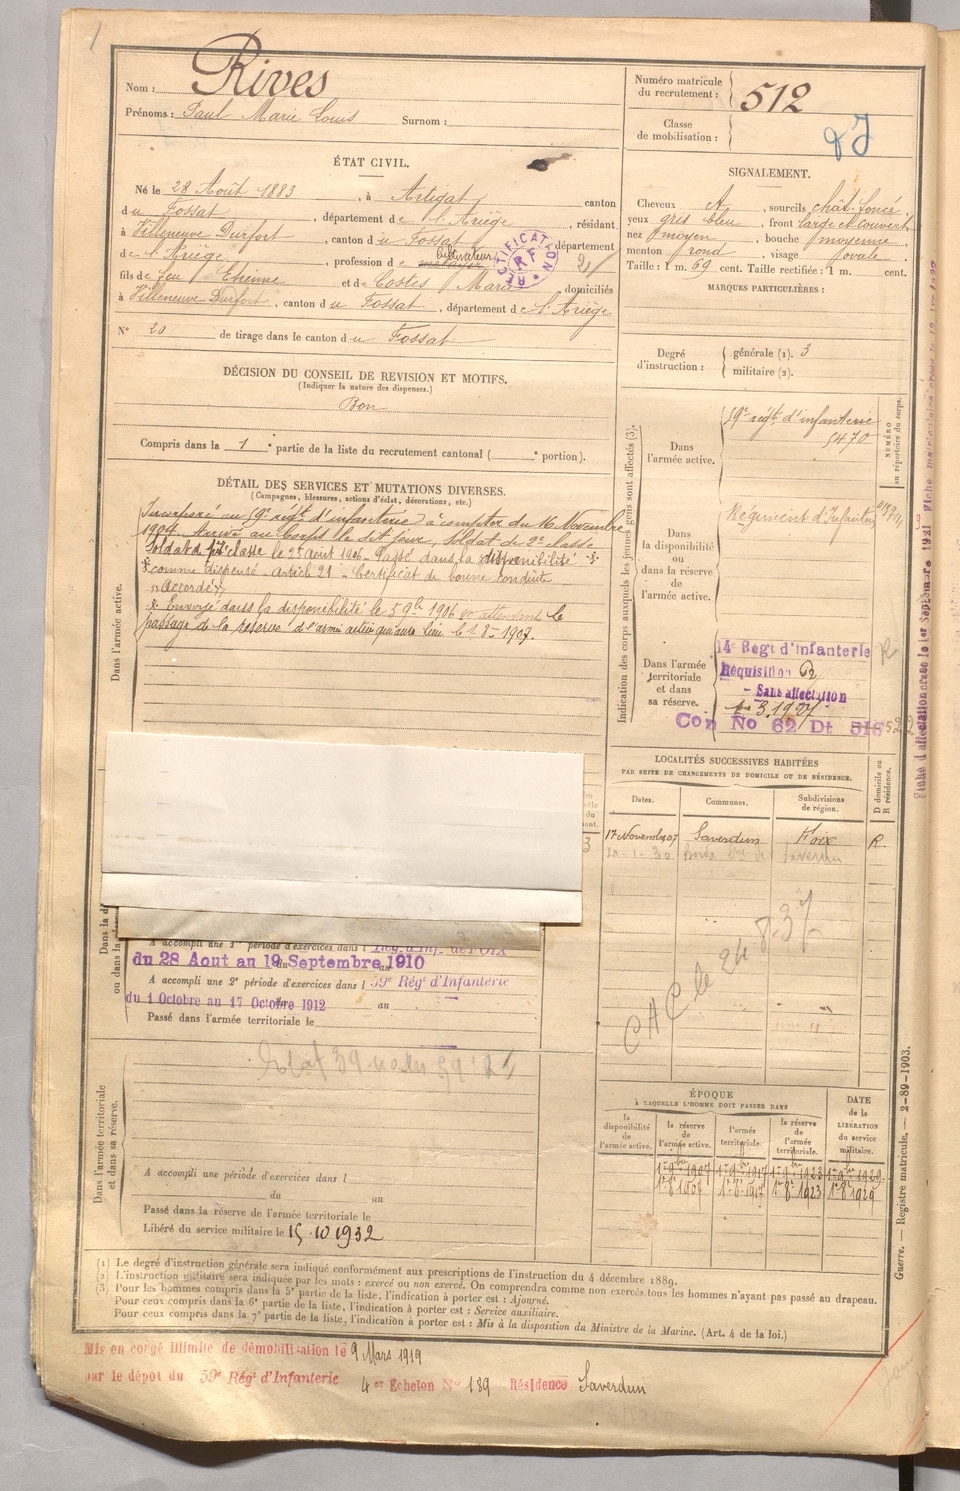 Nom : Rives
Prénoms : Paul Marie Louis Surnom :
Numéro matricule du recrutement : 512
Classe de mobilisation :
ÉTAT CIVIL.
Né le 28 Août 1883, à Artigat canton
du Fossat, département de l'Ariège, résidant
à Villeneuve Durfort, canton du Fossat, département
de l'Ariège, profession de cultivateur
RECTIFICATION RF
fils de feu Etienne et de Costes Marie domiciliés
à Villeneuve Durfort, canton du Fossat, département de l'Ariège
N° 20 de tirage dans le canton du Fossat
SIGNALEMENT.
Cheveux ct, sourcils chat. foncé,
yeux gris bleu, front large et couvert
nez moyen, bouche moyenne,
menton rond, visage ovale.
Taille : 1 m. 69 cent. Taille rectifiée : 1 m. cent.
MARQUES PARTICULIÈRES :
Degré d'instruction : générale (1). 3
militaire (2).
DÉCISION DU CONSEIL DE REVISION ET MOTIFS.
(Indiquer la nature des dispenses.)
Bon
Compris dans la 1e partie de la liste du recrutement cantonal ( e portion).
DÉTAIL DES SERVICES ET MUTATIONS DIVERSES.
(Campagnes, blessures, actions d'éclat, décorations, etc.)
Dans l'armée active.
Incorporé au 59e régt d'infanterie à compter du 16 Novembre
1904. Arrivé au Corps le dit jour, soldat de 2e classe
Soldat de 1ère classe le 25 Août 1906. Passé dans la disponibilité
comme dispensé - Article 21 - Certificat de bonne conduite
"Accordé"
* Envoyé dans la disponibilité le 5 9bre 1906 en attendant le
passage de la réserve de l'armée active qui aura lieu le 1. 8 - 1907.
Indication des corps auxquels les jeunes gens sont affectés (3).
NUMÉRO au répertoire du corps.
Dans l'armée active.
59e régt d'infanterie
5470
Dans la disponibilité ou dans la réserve de l'armée active.
Régiment d'Infanterie
Dans l'armée territoriale et dans sa réserve.
14e Régt d'Infanterie
Réquisition
Sans affectation
Con No 62 Dt 515
LOCALITÉS SUCCESSIVES HABITÉES
PAR SUITE DE CHANGEMENTS DE DOMICILE OU DE RÉSIDENCE.
Dates. Communes. Subdivisions de région. D domicile ou R résidence.
17 Novembre 07 Saverdun Foix R.
CAC le 24 8.37
A accompli une 1e période d'exercices dans l Rég. d'Inf. de FOIX
du 28 Aout au 19 Septembre 1910
A accompli une 2e période d'exercices dans l 59e Régt d'Infanterie
du 1 Octobre au 17 Octobre 1912 au
Passé dans l'armée territoriale le
Dans l'armée territoriale et dans sa réserve.
A accompli une période d'exercices dans l
du au
Passé dans la réserve de l'armée territoriale le
Libéré du service militaire le 15.10 1932
ÉPOQUE
À LAQUELLE L'HOMME DOIT PASSER DANS
la disponibilité de l'armée active. la réserve de l'armée active. l'armée territoriale. la réserve de l'armée territoriale. DATE de la LIBÉRATION du service militaire.
1er 9bre 1907 1er 9bre 1917 1er 9bre 1923 1er 9bre 1929
1er 8 1907 1er 8 1917 1er 8 1923 1er 8 1929
Guerre. — Registre matricule. — 2-89-1903.
(1) Le degré d'instruction générale sera indiqué conformément aux prescriptions de l'instruction du 4 décembre 1889.
(2) L'instruction militaire sera indiquée par les mots : exercé ou non exercé. On comprendra comme non exercés tous les hommes n'ayant pas passé au drapeau.
(3) Pour les hommes compris dans la 5e partie de la liste, l'indication à porter est : Ajourné.
Pour ceux compris dans la 6e partie de la liste, l'indication à porter est : Service auxiliaire.
Pour ceux compris dans la 7e partie de la liste, l'indication à porter est : Mis à la disposition du Ministre de la Marine. (Art. 4 de la loi.)
Mis en congé illimité de démobilisation le 9 Mars 1919
par le dépôt du 59e Régt d'Infanterie 4 er Echelon N° 189 Résidence Saverdun